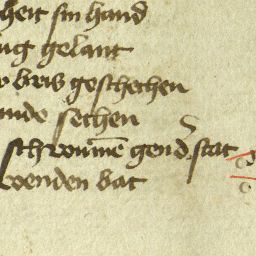 heit sin hand
ug gelant
bris geschechen
ende sechen
schwumē gend stat
wenden bat